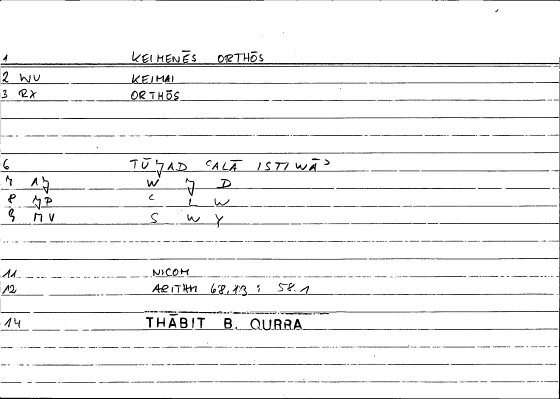 1 KEIMENĒS ORTHŌS
2 WU KEIMAI
3 RX ORTHŌS
6 TŪ ʿALĀ ISTIWĀʾ
W D
8 ʿ L W
9 ΠV S W Y
11 NICOM
12 ARITHM 68,13 : 58.1
14 THĀBIT B. QURRA